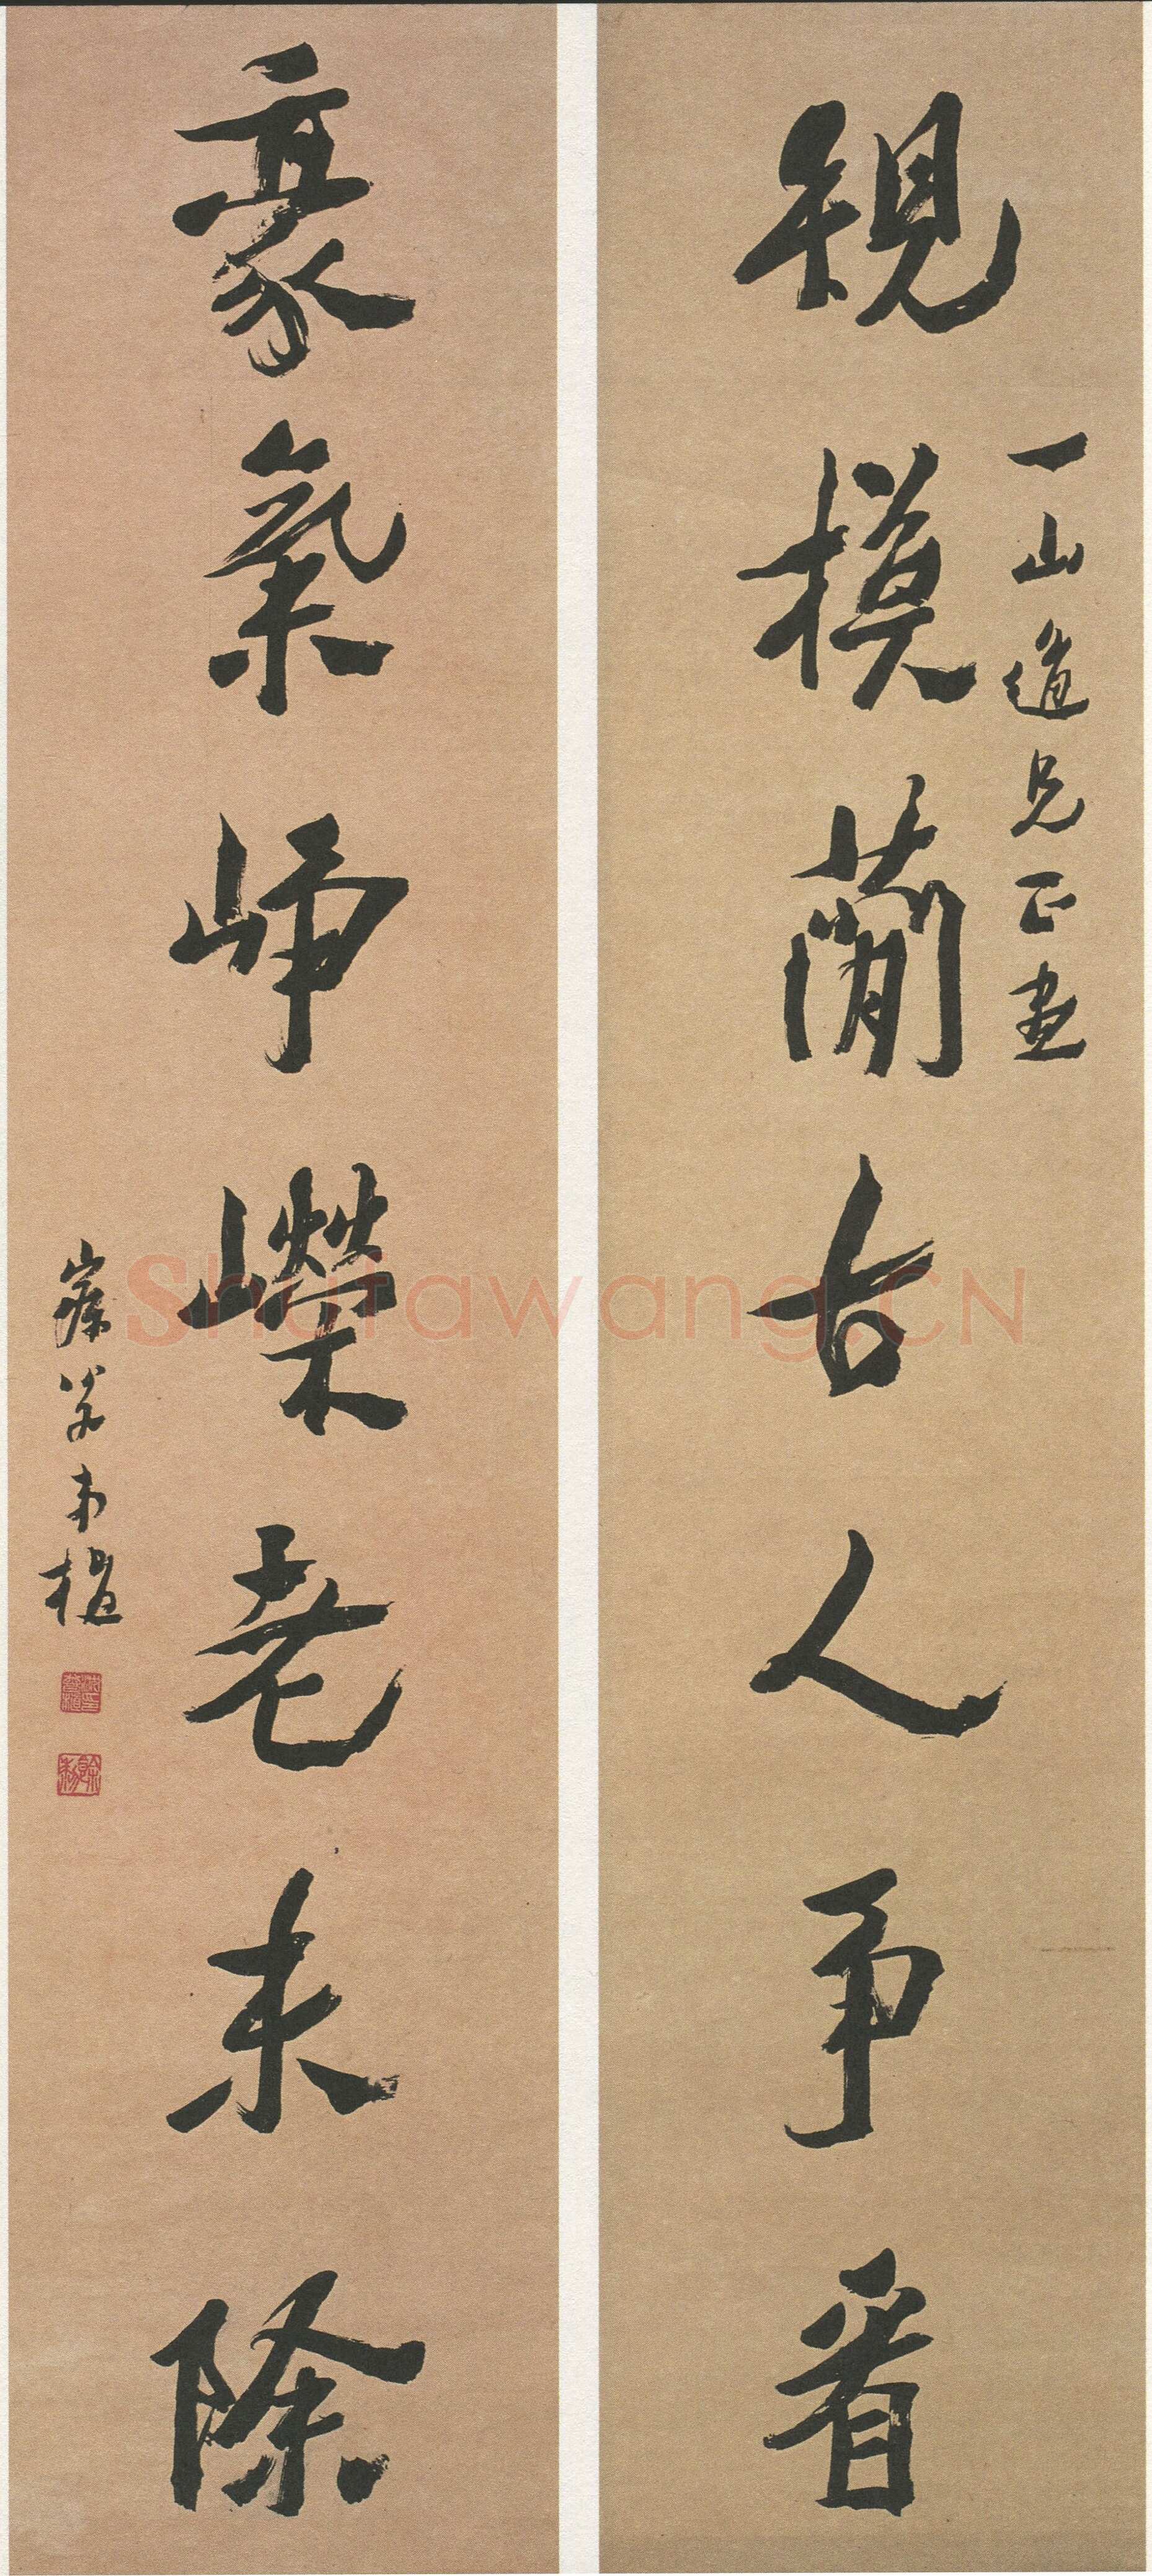 一山道兄正
規模簡古人爭看
豪氣崢嶸老未除
寐叟弟植
Shufawang.CN